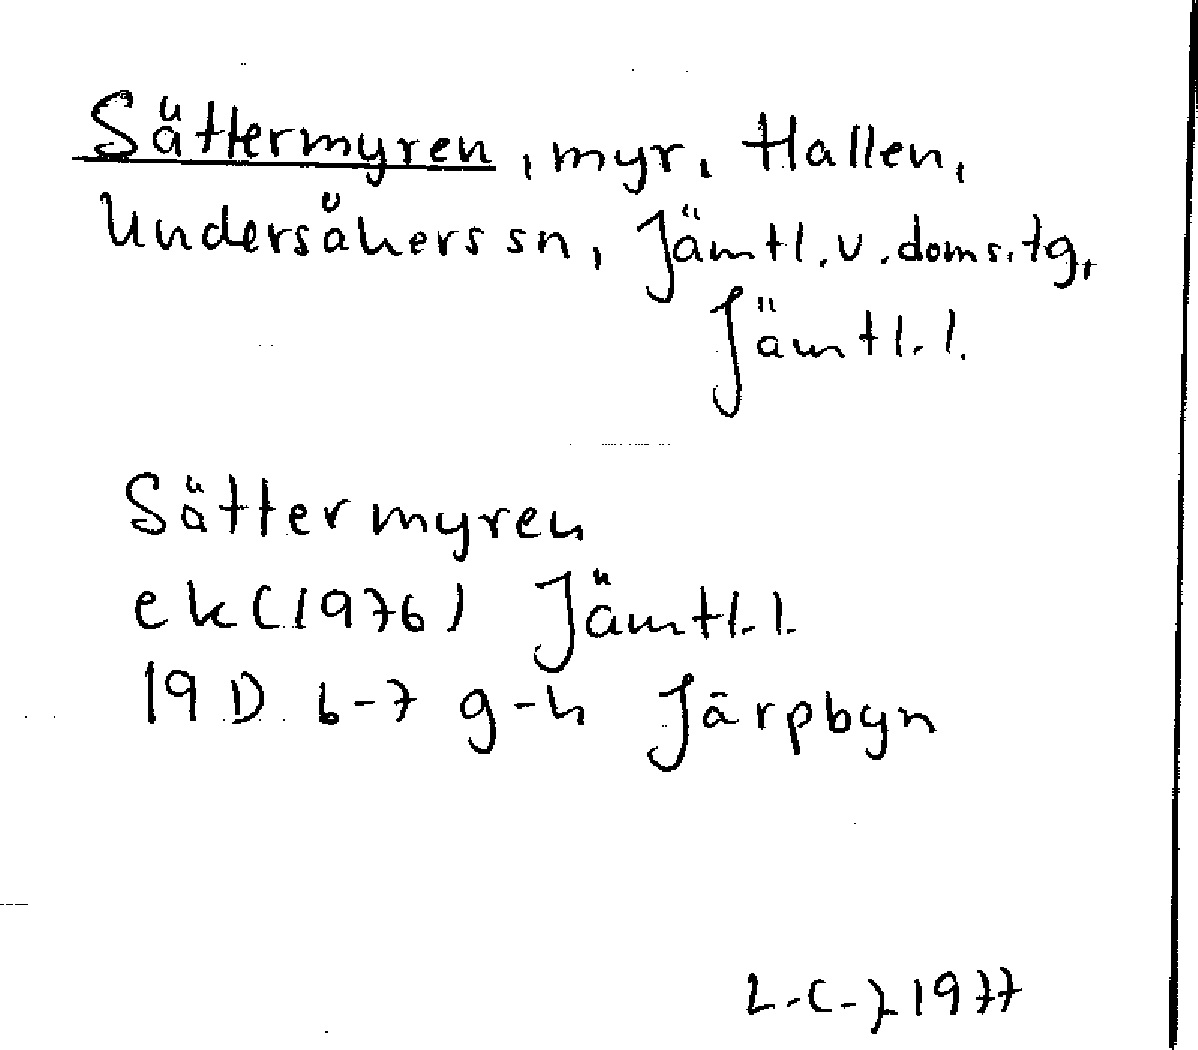 Sättermyren, myr, Hallen,
Undersåkers sn, Jämtl. v. doms. tg,
Jämtl. l.
Sättermyren
ek (1976) Jämtl. l.
19 D 6-7 g-h Järpbyn
L-C-J. 1977